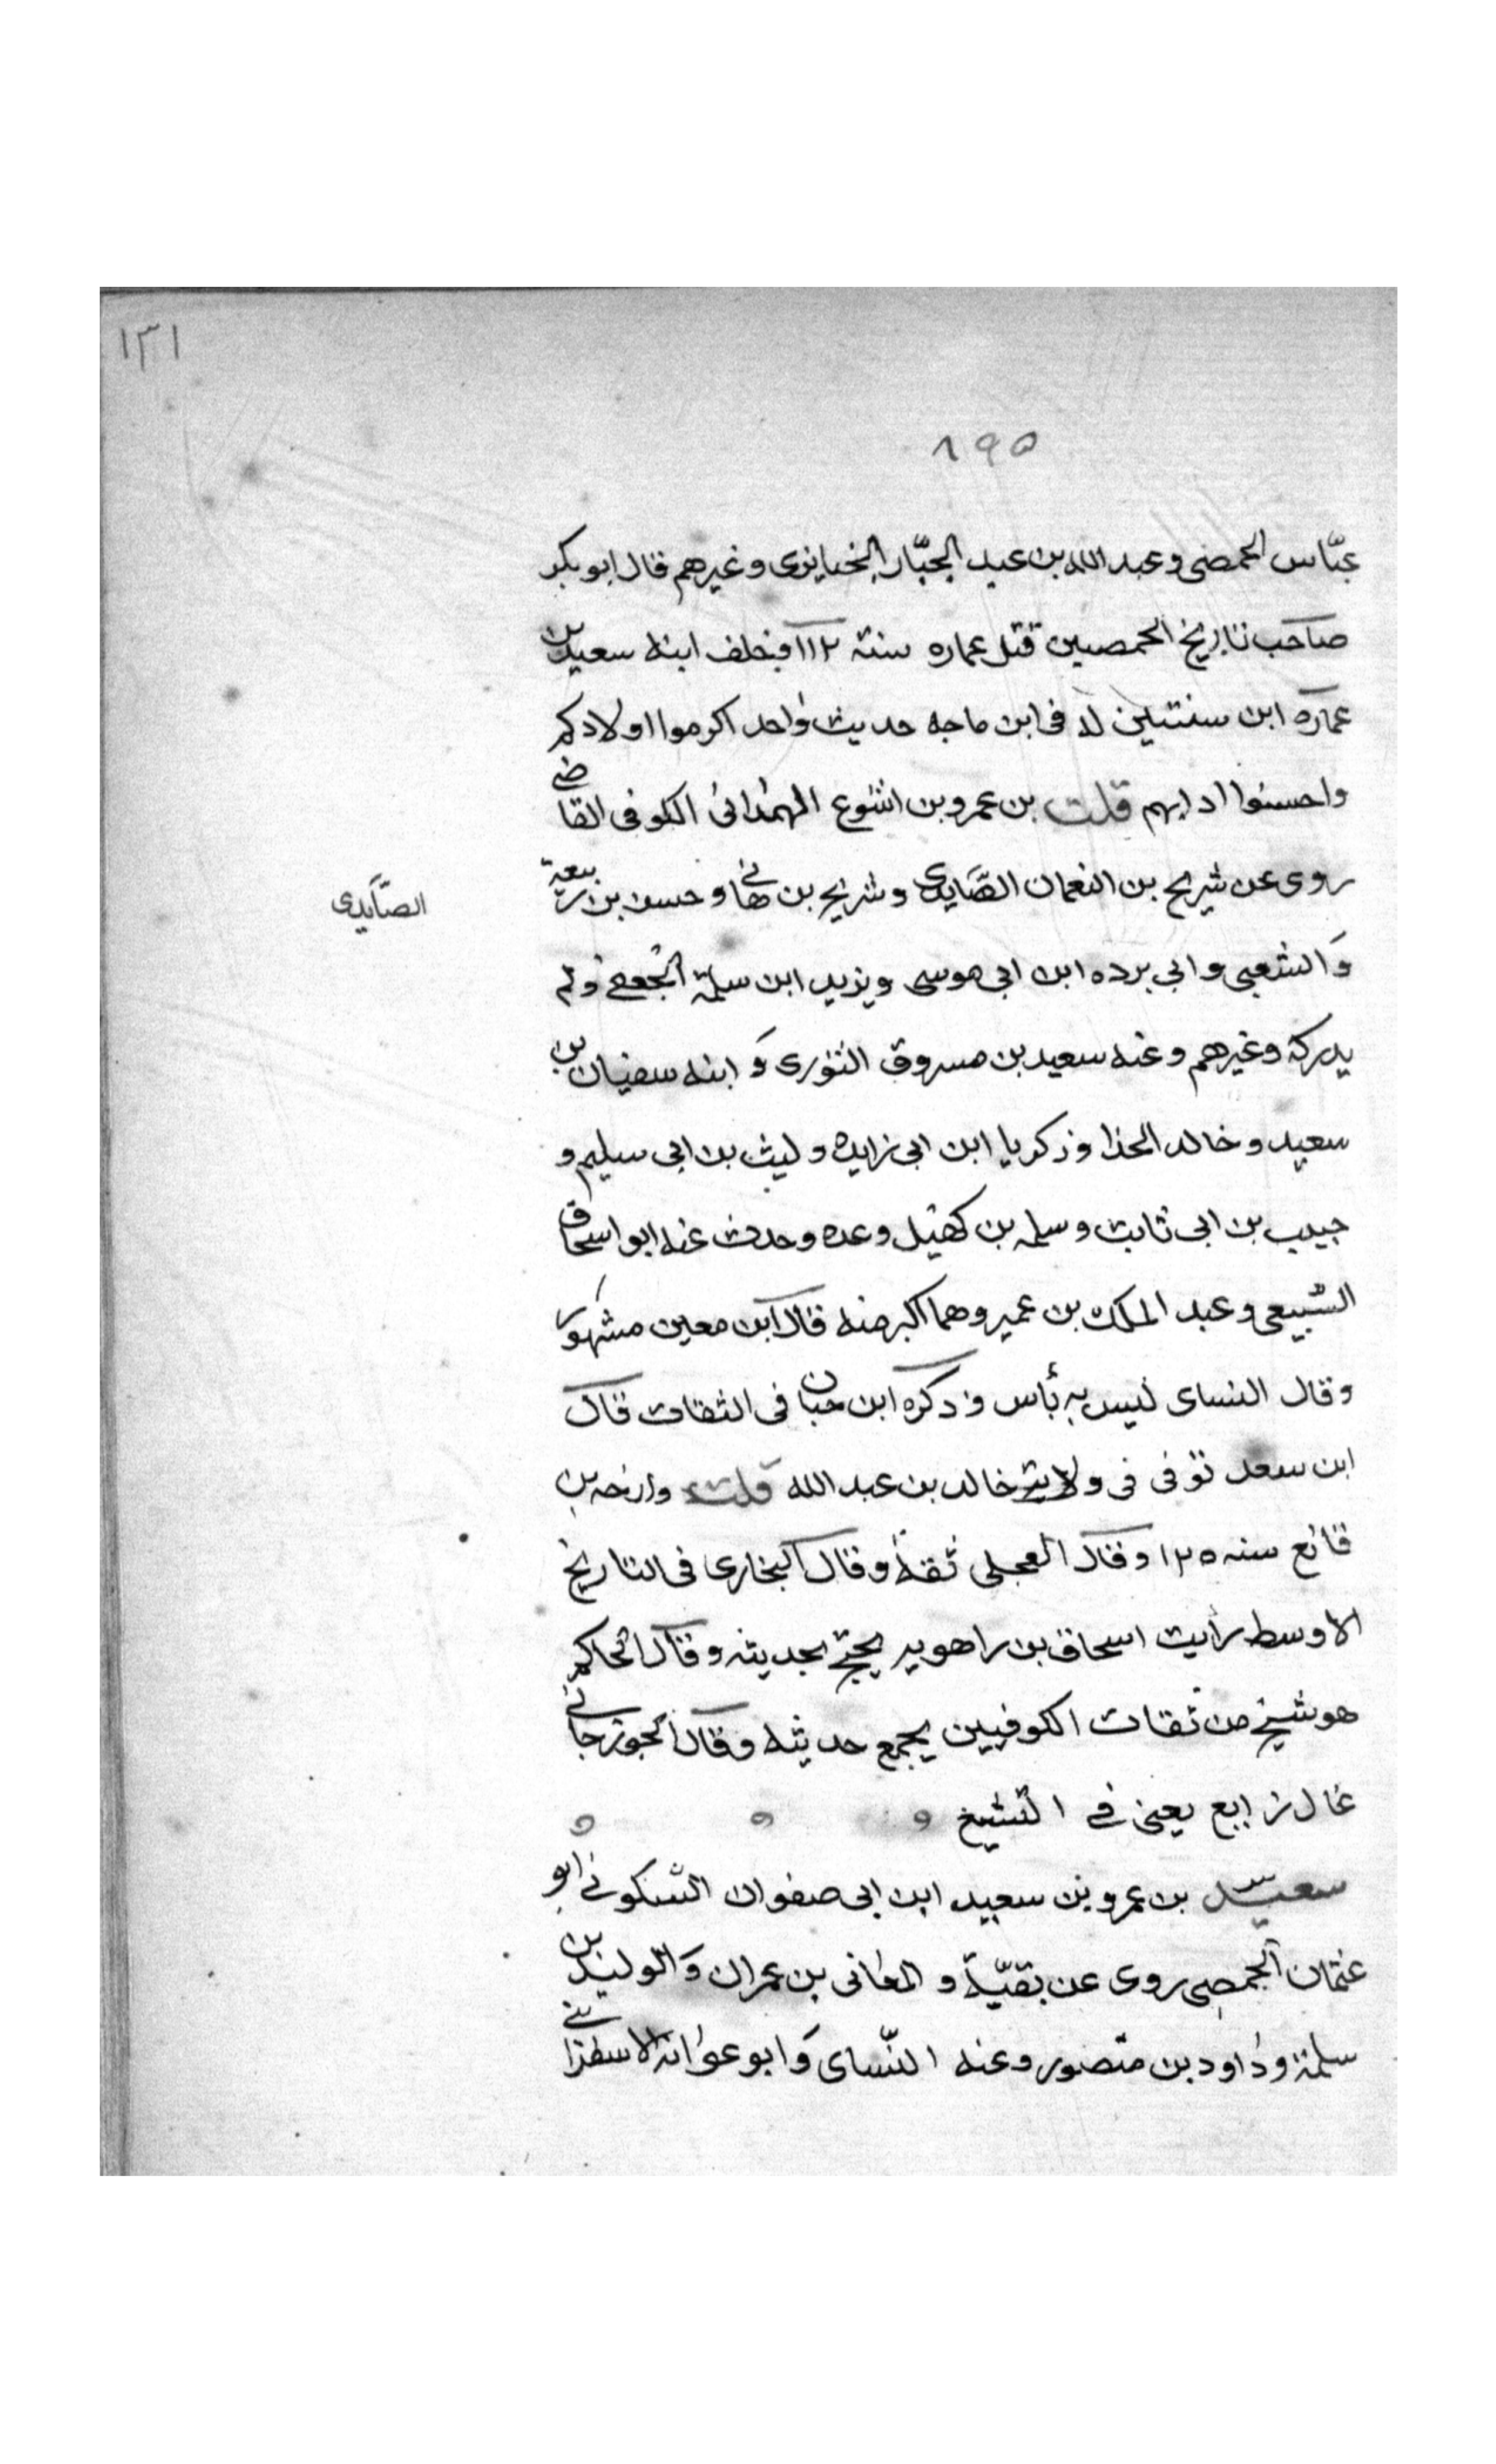 ١٣١
٨٩٥
عبّاس الحمصى وعبد الله بن عبد الجبّار الخبايزى وغيرهم قال ابو بكر
صاحب تاريخ الحمصيين قتل عماره سنة ١١٢ فخلف ابنه سعيد بن
عمارة ابن سنتين له فى ابن ماجه حديث واحد اكرموا اولادكم
واحسنوا ادابهم قلت بن عمرو بن اشوع الهمدانى الكوفى القاضي
روى عن شريح بن النعمان الصّايدى وشريح بن هانئ وحسن بن ربيعة
الصّايدى
والشعبى وابى برده ابن ابى موسى ويزيد ابن سلمة الجعفے ولم
يدركه وغيرهم وعنه سعيد بن مسروق الثورى وابنه سفيان بن
سعيد وخالد الحذا وزكريا ابن ابى زايده وليث بن ابى سليم و
حبيب بن ابى ثابت وسلمه بن كهيل وعده وحدث عنه ابو اسحاق
السّبيعى وعبد الملك بن عمير وهما اكبر منه قال ابن معين مشهور
وقال النساى ليس به بأس وذكره ابن حبان فى الثقات قال
ابن سعد توفى فى ولاية خالد بن عبد الله قلت وارخه بن
قانع سنه ١٢٥ وقال العجلى ثقة وقال البخارى فى التاريخ
الاوسط رأيت اسحاق بن راهويه يحتج بحديثه وقال الحاكم
هو شيخ من ثقات الكوفيين يجمع حديثه وقال الجوزجانے
غال زايع يعنى فے التشيخ
سعيد بن عمرو بن سعيد ابن ابى صفوان السّكونے ابو
عثمان الحمصى روى عن بقيّة والمعافى بن عمران والوليد بن
سلمة وداود بن منصور وعنه النّساى وابو عوانة الاسفراينے